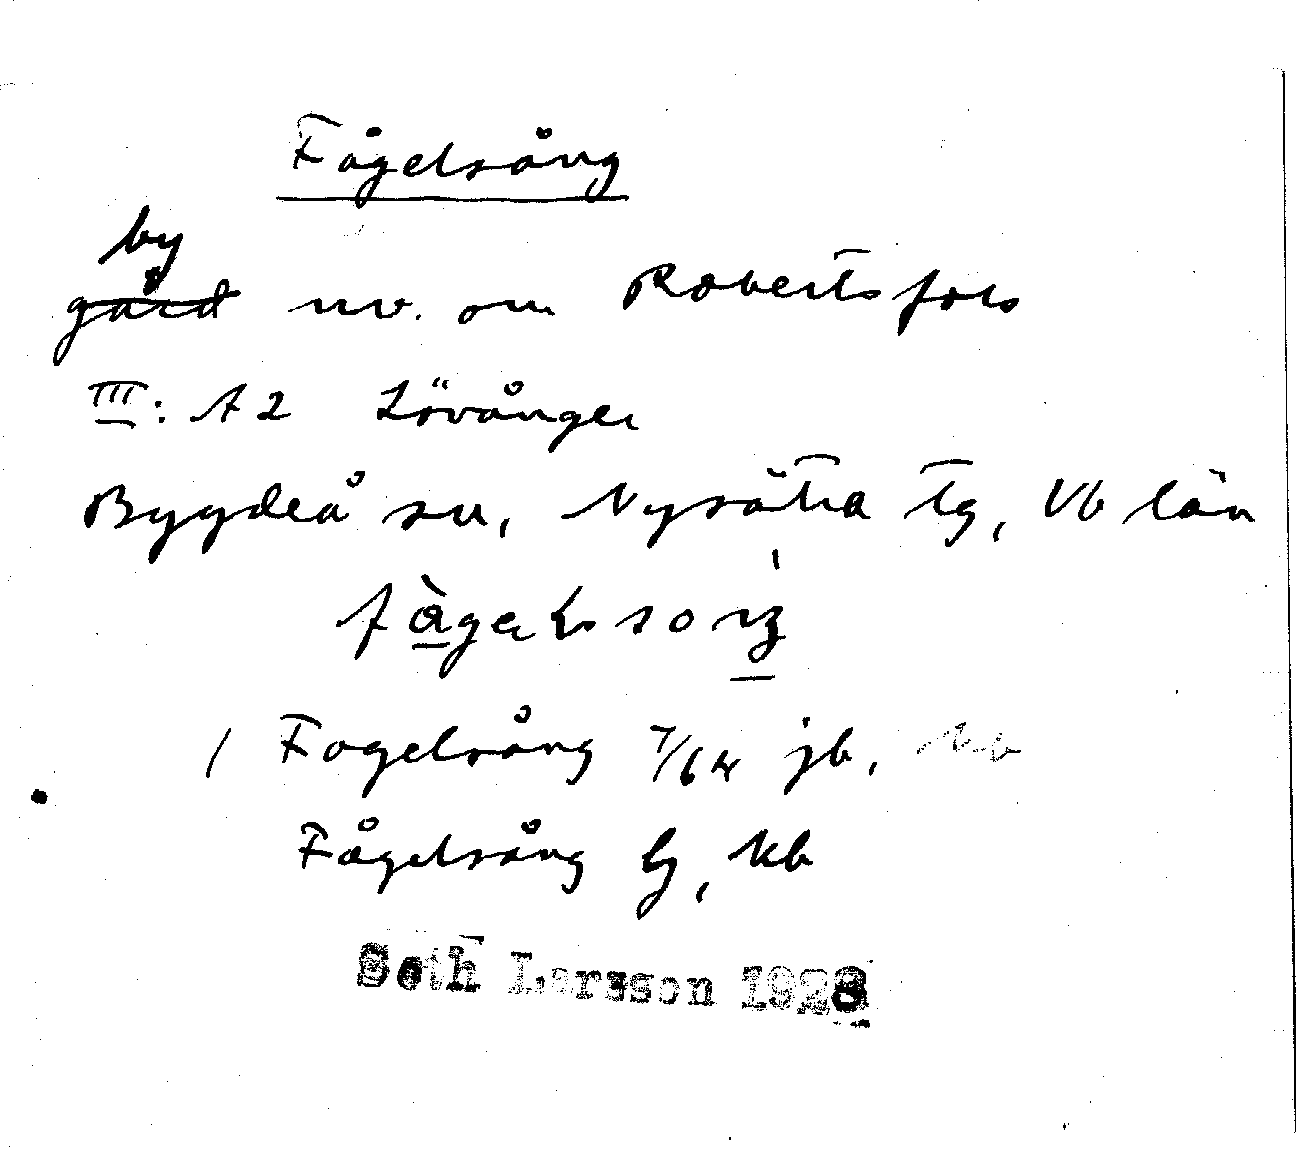 Fågelsång
by
gård nv. om Robertsfors
III: A2 Lövånger
Bygdeå sn, Nysätra tg, Vb län
Fogelsång 7/64 jb,
Fågelsång Ej, kb
Seth Larsson 1928